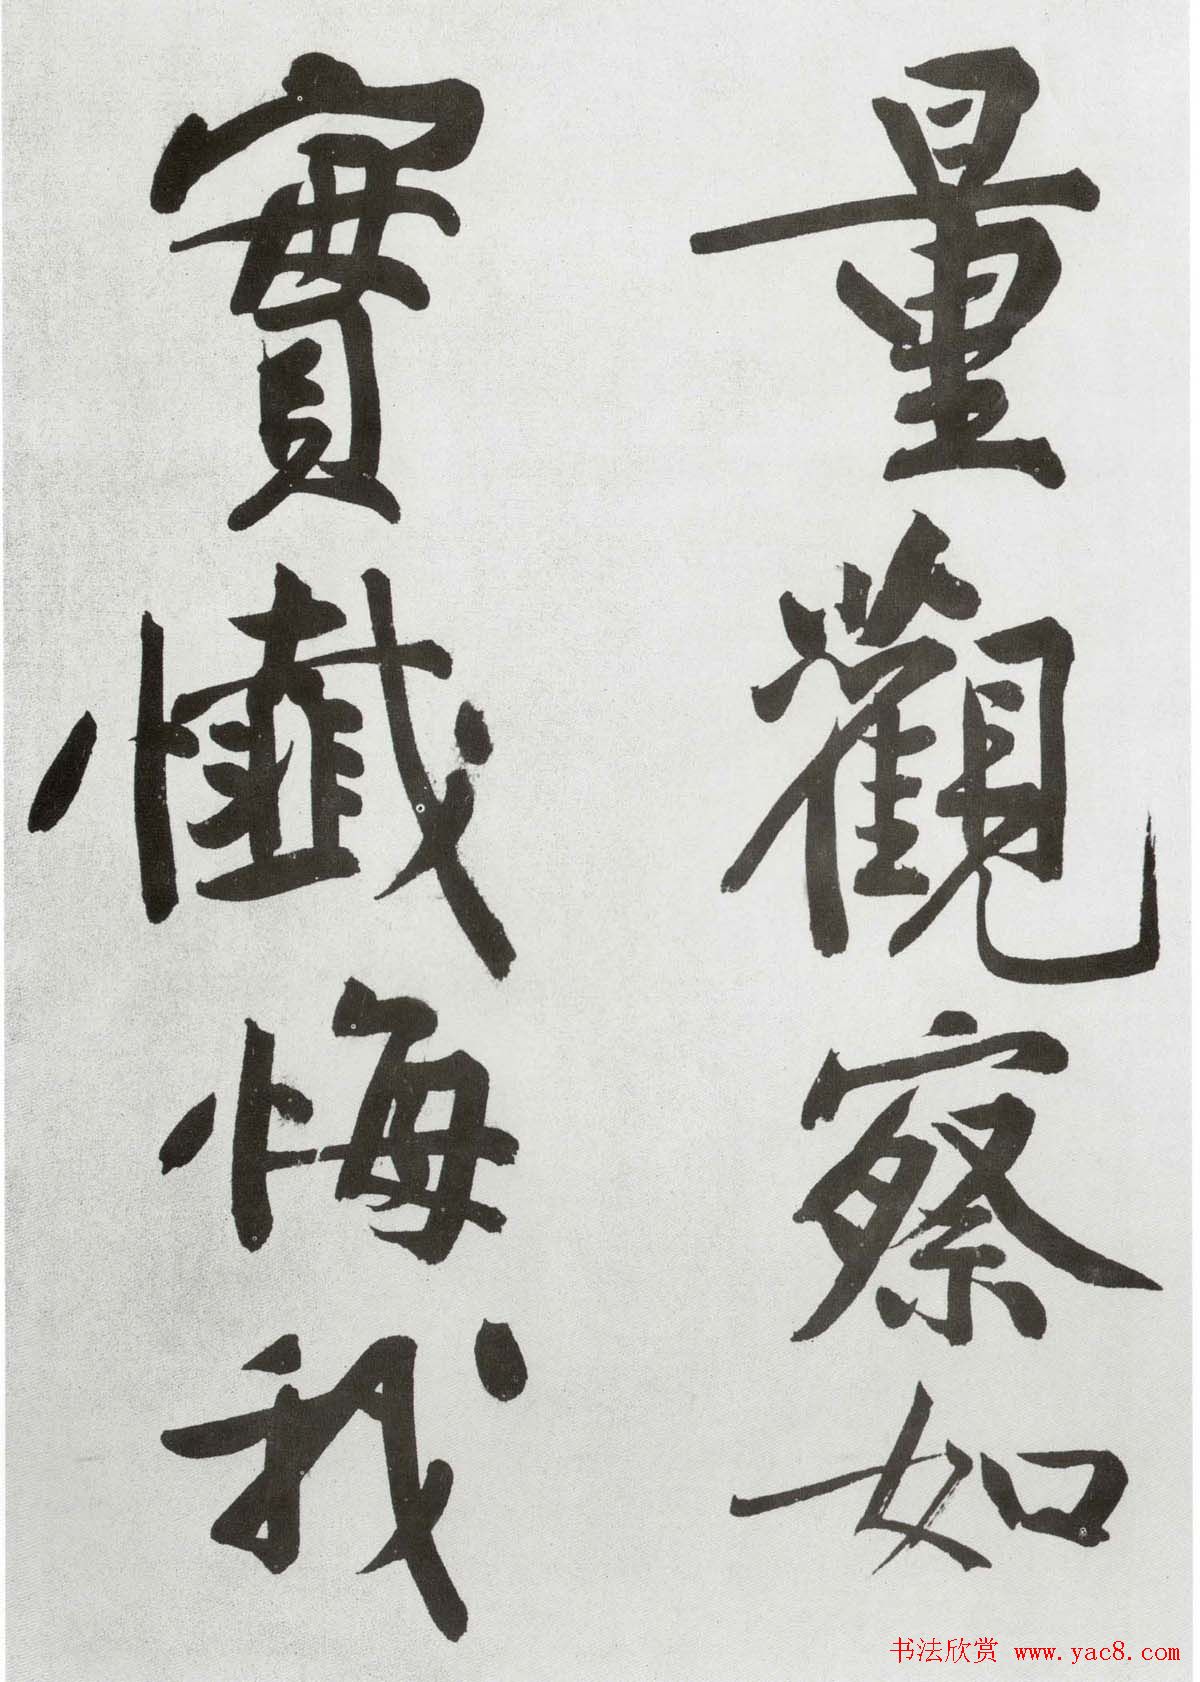 量觀察如
實懺悔我
书法欣赏 www.yac8.com